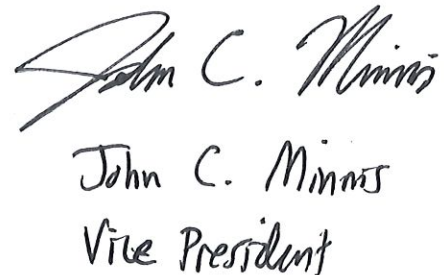 John C. Minnis
John C. Minnis
Vice President